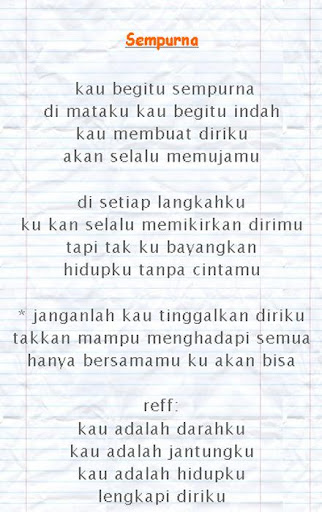 Sempurna
kau begitu sempurna
di mataku kau begitu indah
kau membuat diriku
akan selalu memujamu
di setiap langkahku
ku kan selalu memikirkan dirimu
tapi tak ku bayangkan
hidupku tanpa cintamu
* janganlah kau tinggalkan diriku
takkan mampu menghadapi semua
hanya bersamamu ku akan bisa
reff:
kau adalah darahku
kau adalah jantungku
kau adalah hidupku
lengkapi diriku